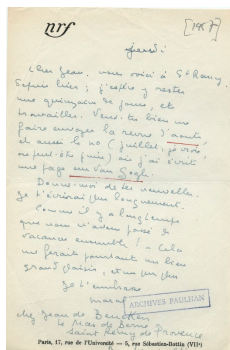 nrf
[1957]
jeudi
cher Jean, nous voici à St Remy,
depuis hier ; j'espère y rester
une quinzaine de jours, et
travailler. Veux-tu bien me
faire envoyer la revue d'août,
et aussi le no (juillet, je crois,
peut-être juin) où j'ai écrit
une page sur Van Gogh.
Donne-moi de tes nouvelles.
Je t'écrirai plus longuement.
Comme il y a longtemps
que nous n'avons passé de
vacances ensemble ! Cela
me ferait pourtant un bien
grand plaisir, et un peu
Je t'embrasse
marcel
ARCHIVES PAULHAN
chez Jean de Beucken
le Mas de Berne
Saint Remy de Provence
Paris, 17, rue de l'Université — 5, rue Sébastien-Bottin (VIIe)